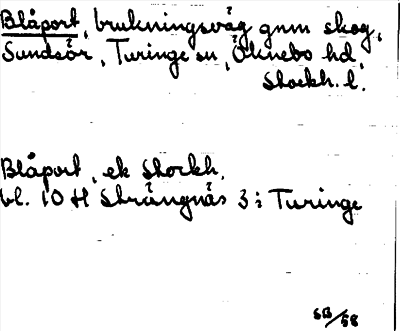 Blåport, brukningsväg gnm skog,
Sundsör, Turinge sn, Öknebo hd,
Stockh. l.
Blåport, ek Stockh.
bl. 10 H Strängnäs 3 i Turinge
SB/58